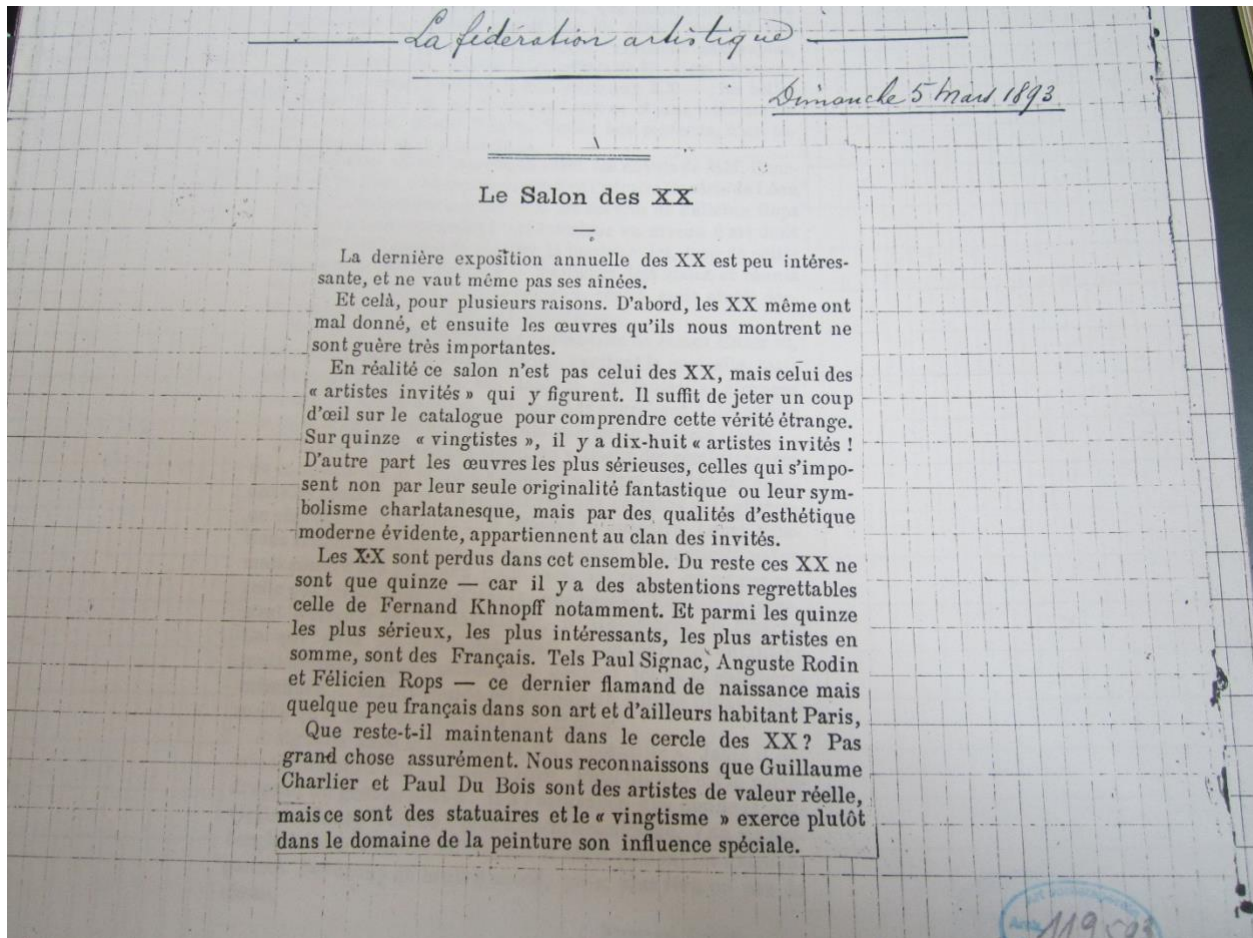 La fédération artistique
Dimanche 5 Mars 1893
Le Salon des XX
La dernière exposition annuelle des XX est peu intéres-
sante, et ne vaut même pas ses aînées.
Et celà, pour plusieurs raisons. D'abord, les XX même ont
mal donné, et ensuite les œuvres qu'ils nous montrent ne
sont guère très importantes.
En réalité ce salon n'est pas celui des XX, mais celui des
« artistes invités » qui y figurent. Il suffit de jeter un coup
d'œil sur le catalogue pour comprendre cette vérité étrange.
Sur quinze « vingtistes », il y a dix-huit « artistes invités !
D'autre part les œuvres les plus sérieuses, celles qui s'impo-
sent non par leur seule originalité fantastique ou leur sym-
bolisme charlatanesque, mais par des qualités d'esthétique
moderne évidente, appartiennent au clan des invités.
Les X·X sont perdus dans cet ensemble. Du reste ces XX ne
sont que quinze — car il y a des abstentions regrettables
celle de Fernand Khnopff notamment. Et parmi les quinze
les plus sérieux, les plus intéressants, les plus artistes en
somme, sont des Français. Tels Paul Signac, Anguste Rodin
et Félicien Rops — ce dernier flamand de naissance mais
quelque peu français dans son art et d'ailleurs habitant Paris,
Que reste-t-il maintenant dans le cercle des XX ? Pas
grand chose assurément. Nous reconnaissons que Guillaume
Charlier et Paul Du Bois sont des artistes de valeur réelle,
mais ce sont des statuaires et le « vingtisme » exerce plutôt
dans le domaine de la peinture son influence spéciale.